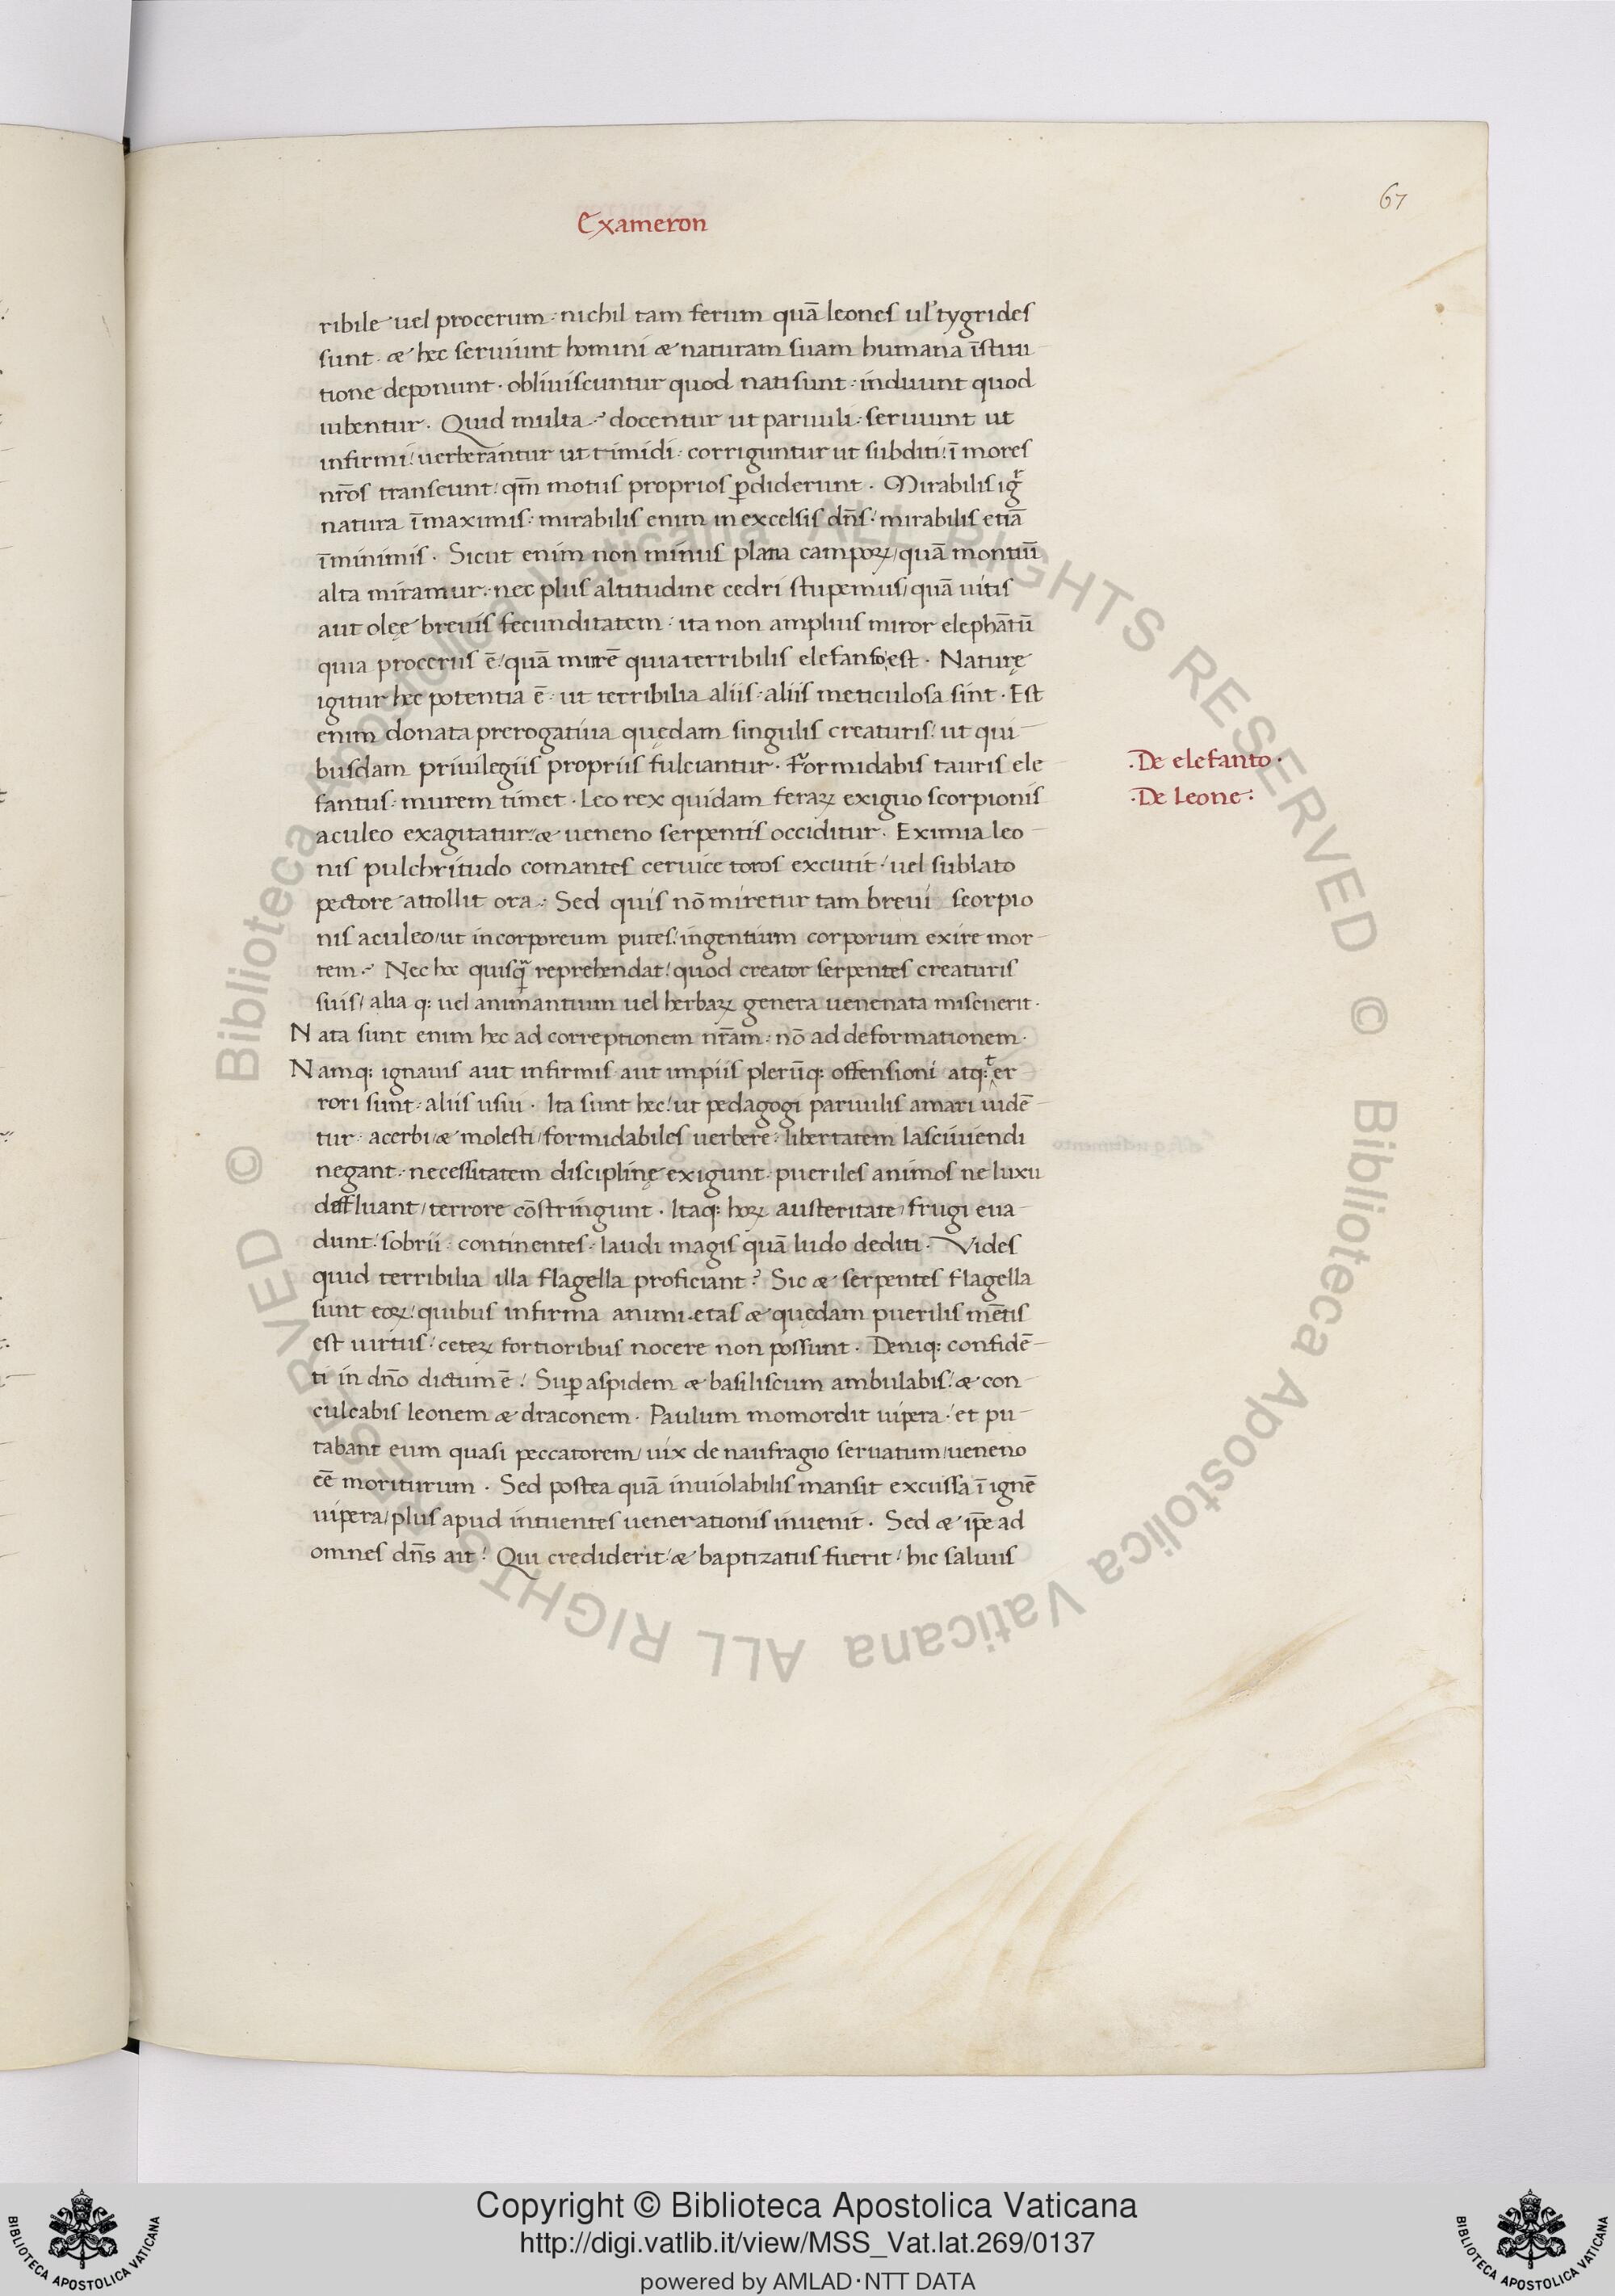 67
Exameron
ribile uel procerum · nichil tam ferum quā leones ul' tygrides
sunt · & hec seruiunt homini & naturam suam humana īstitu
tione deponunt · obliuiscuntur quod nati sunt : induunt quod
iubentur · Quid multa ? docentur ut paruuli : seruiunt ut
infirmi : uerberantur ut timidi : corriguntur ut subditi : ī mores
nr̄os transeunt : qm̄ motus proprios ꝑdiderunt · Mirabilis igr̄
natura ī maximis : mirabilis enim in excelsis dn̄s : mirabilis etiā
ī minimis · Sicut enim non minus plana campoꝝ / quā montiū
alta miramur : nec plus altitudine cedri stupemus / quā uitis
aut oleę breuis fecunditatem : ita non amplius miror elephātū
quia procerus ē / quā murē quia terribilis elefanto est · Naturę
igitur hec potentia ē : ut terribilia aliis : aliis meticulosa sint · Est
enim donata prerogatiua quędam singulis creaturis : ut qui
busdam priuilegiis propriis fulciantur · Formidabis tauris ele
fantus : murem timet · Leo rex quidam feraꝝ exiguo scorpionis
aculeo exagitatur : & ueneno serpentis occiditur · Eximia leo
nis pulchritudo comantes ceruice toros excutit : uel sublato
pectore attollit ora : Sed quis nō miretur tam breui scorpio
nis aculeo / ut incorporeum putes : ingentium corporum exire mor
tem ? Nec hoc quisqᷓ reprehendat : quod creator serpentes creaturis
suis / alia q: uel animantium uel herbaꝝ genera uenenata miscuerit ·
Nata sunt enim hec ad correptionem nr̄am : nō ad deformationem ·
Namq: ignauis aut infirmis aut impiis plerūq: offensioni atq: t er
rori sunt : aliis usui · Ita sunt hec : ut pedagogi paruulis amari uidē
tur : acerbi / & molesti / formidabiles uerbere : libertatem lasciuiendi
negant : necessitatem disciplinę exigunt · pueriles animos ne luxu
diffluant / terrore cōstringunt · Itaq: hoꝝ austeritate / frugi eua
dunt : sobrii : continentes : laudi magis quā ludo dediti · Vides
quid terribilia illa flagella proficiant ? Sic & serpentes flagella
sunt eoꝝ : quibus infirma animi etas & quędam puerilis mētis
est uirtus : ceteꝝ fortioribus nocere non possunt · Deniq: confidē
ti in dn̄o dictum ē : Suꝑ aspidem & basiliscum ambulabis : & con
culcabis leonem & draconem · Paulum momordit uipera : et pu
tabant eum quasi peccatorem / uix de naufragio seruatum / ueneno
eē moriturum · Sed postea quā inuiolabilis mansit excussa ī ignē
uipera / plus apud intuentes uenerationis inuenit · Sed & ip̄e ad
omnes dn̄s ait : Qui crediderit : & baptizatus fuerit : hic saluus
· De elefanto ·
· De leone :
© Biblioteca Apostolica Vaticana ALL RIGHTS RESERVED © Biblioteca Apostolica Vaticana ALL RIGHTS RESERVED
Copyright © Biblioteca Apostolica Vaticana
http://digi.vatlib.it/view/MSS_Vat.lat.269/0137
powered by AMLAD·NTT DATA
BIBLIOTECA APOSTOLICA VATICANA
BIBLIOTECA APOSTOLICA VATICANA